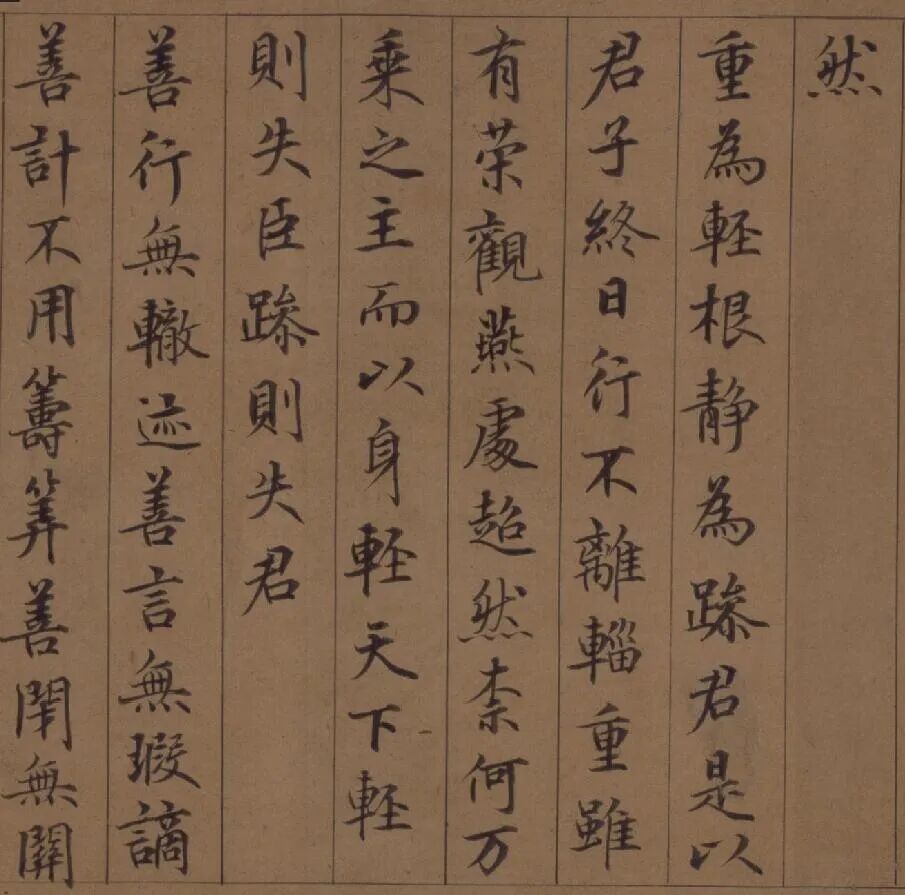 然
重為軽根静為躁君是以
君子終日行不離輜重雖
有荣觀燕處超然柰何万
乘之主而以身軽天下軽
則失臣躁則失君
善行無轍迹善言無瑕謫
善計不用籌筭善閇無關